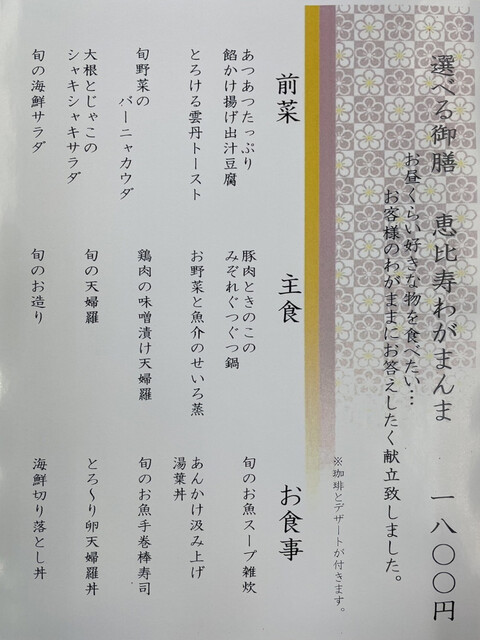 選べる御膳　恵比寿わがまんま　一八〇〇円
お昼くらい好きな物を食べたい…
お客様のわがままにお答えしたく献立致しました。
※珈琲とデザートが付きます。
前菜
あつあつたっぷり
餡かけ揚げ出汁豆腐
とろける雲丹トースト
旬野菜の
バーニャカウダ
大根とじゃこの
シャキシャキサラダ
旬の海鮮サラダ
主食
豚肉ときのこの
みぞれぐつぐつ鍋
お野菜と魚介のせいろ蒸
鶏肉の味噌漬け天婦羅
旬の天婦羅
旬のお造り
お食事
旬のお魚スープ雑炊
あんかけ汲み上げ
湯葉丼
旬のお魚手巻棒寿司
とろ〜り卵天婦羅丼
海鮮切り落とし丼